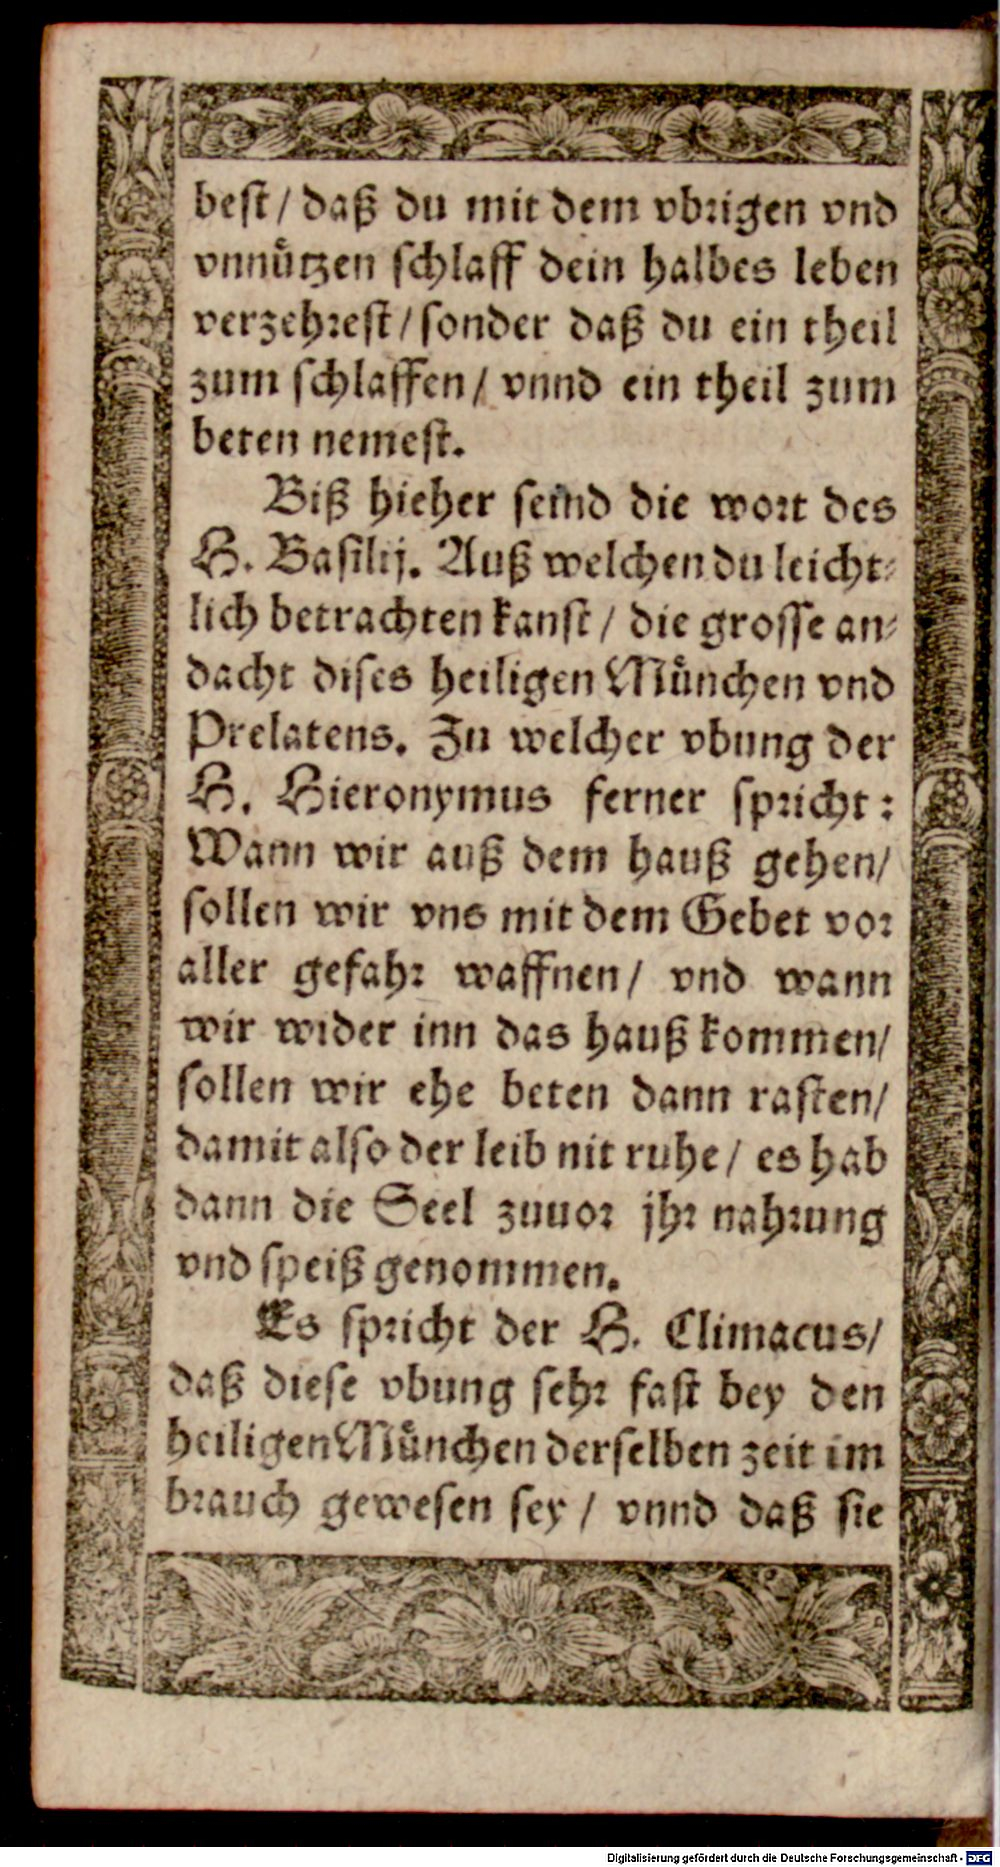 best / daß du mit dem vbrigen vnd
vnnützen schlaff dein halbes leben
verzehrest / sonder daß du ein theil
zum schlaffen / vnnd ein theil zum
beten nemest.
Biß hieher seind die wort des
H. Basilij. Auß welchen du leicht-
lich betrachten kanst / die grosse an-
dacht dises heiligen München vnd
Prelatens. Zu welcher vbung der
H. Hieronymus ferner spricht:
Wann wir auß dem hauß gehen/
sollen wir vns mit dem Gebet vor
aller gefahr waffnen / vnd wann
wir wider inn das hauß kommen/
sollen wir ehe beten dann rasten/
damit also der leib nit ruhe / es hab
dann die Seel zuuor jhr nahrung
vnd speiß genommen.
Es spricht der H. Climacus/
daß diese vbung sehr fast bey den
heiligen München derselben zeit im
brauch gewesen sey / vnnd daß sie
Digitalisierung gefördert durch die Deutsche Forschungsgemeinschaft - DFG